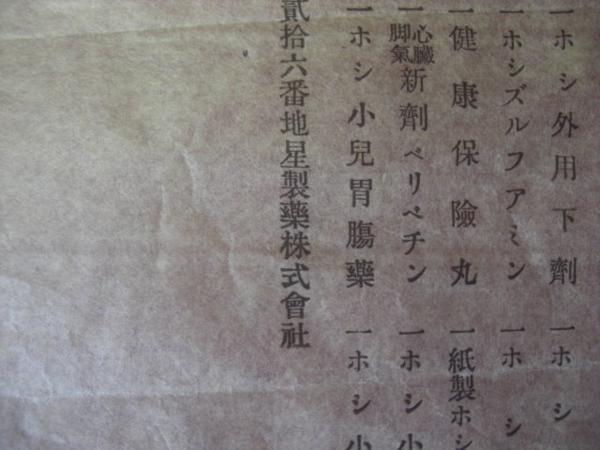 一ホシ外用下劑 一ホシ
一ホシズルフアミン 一ホシ
一健康保險丸 一紙製ホシ
一心臟脚氣新劑ベリベチン 一ホシ小
一ホシ小兒胃腸藥 一ホシ小
貳拾六番地星製藥株式會社